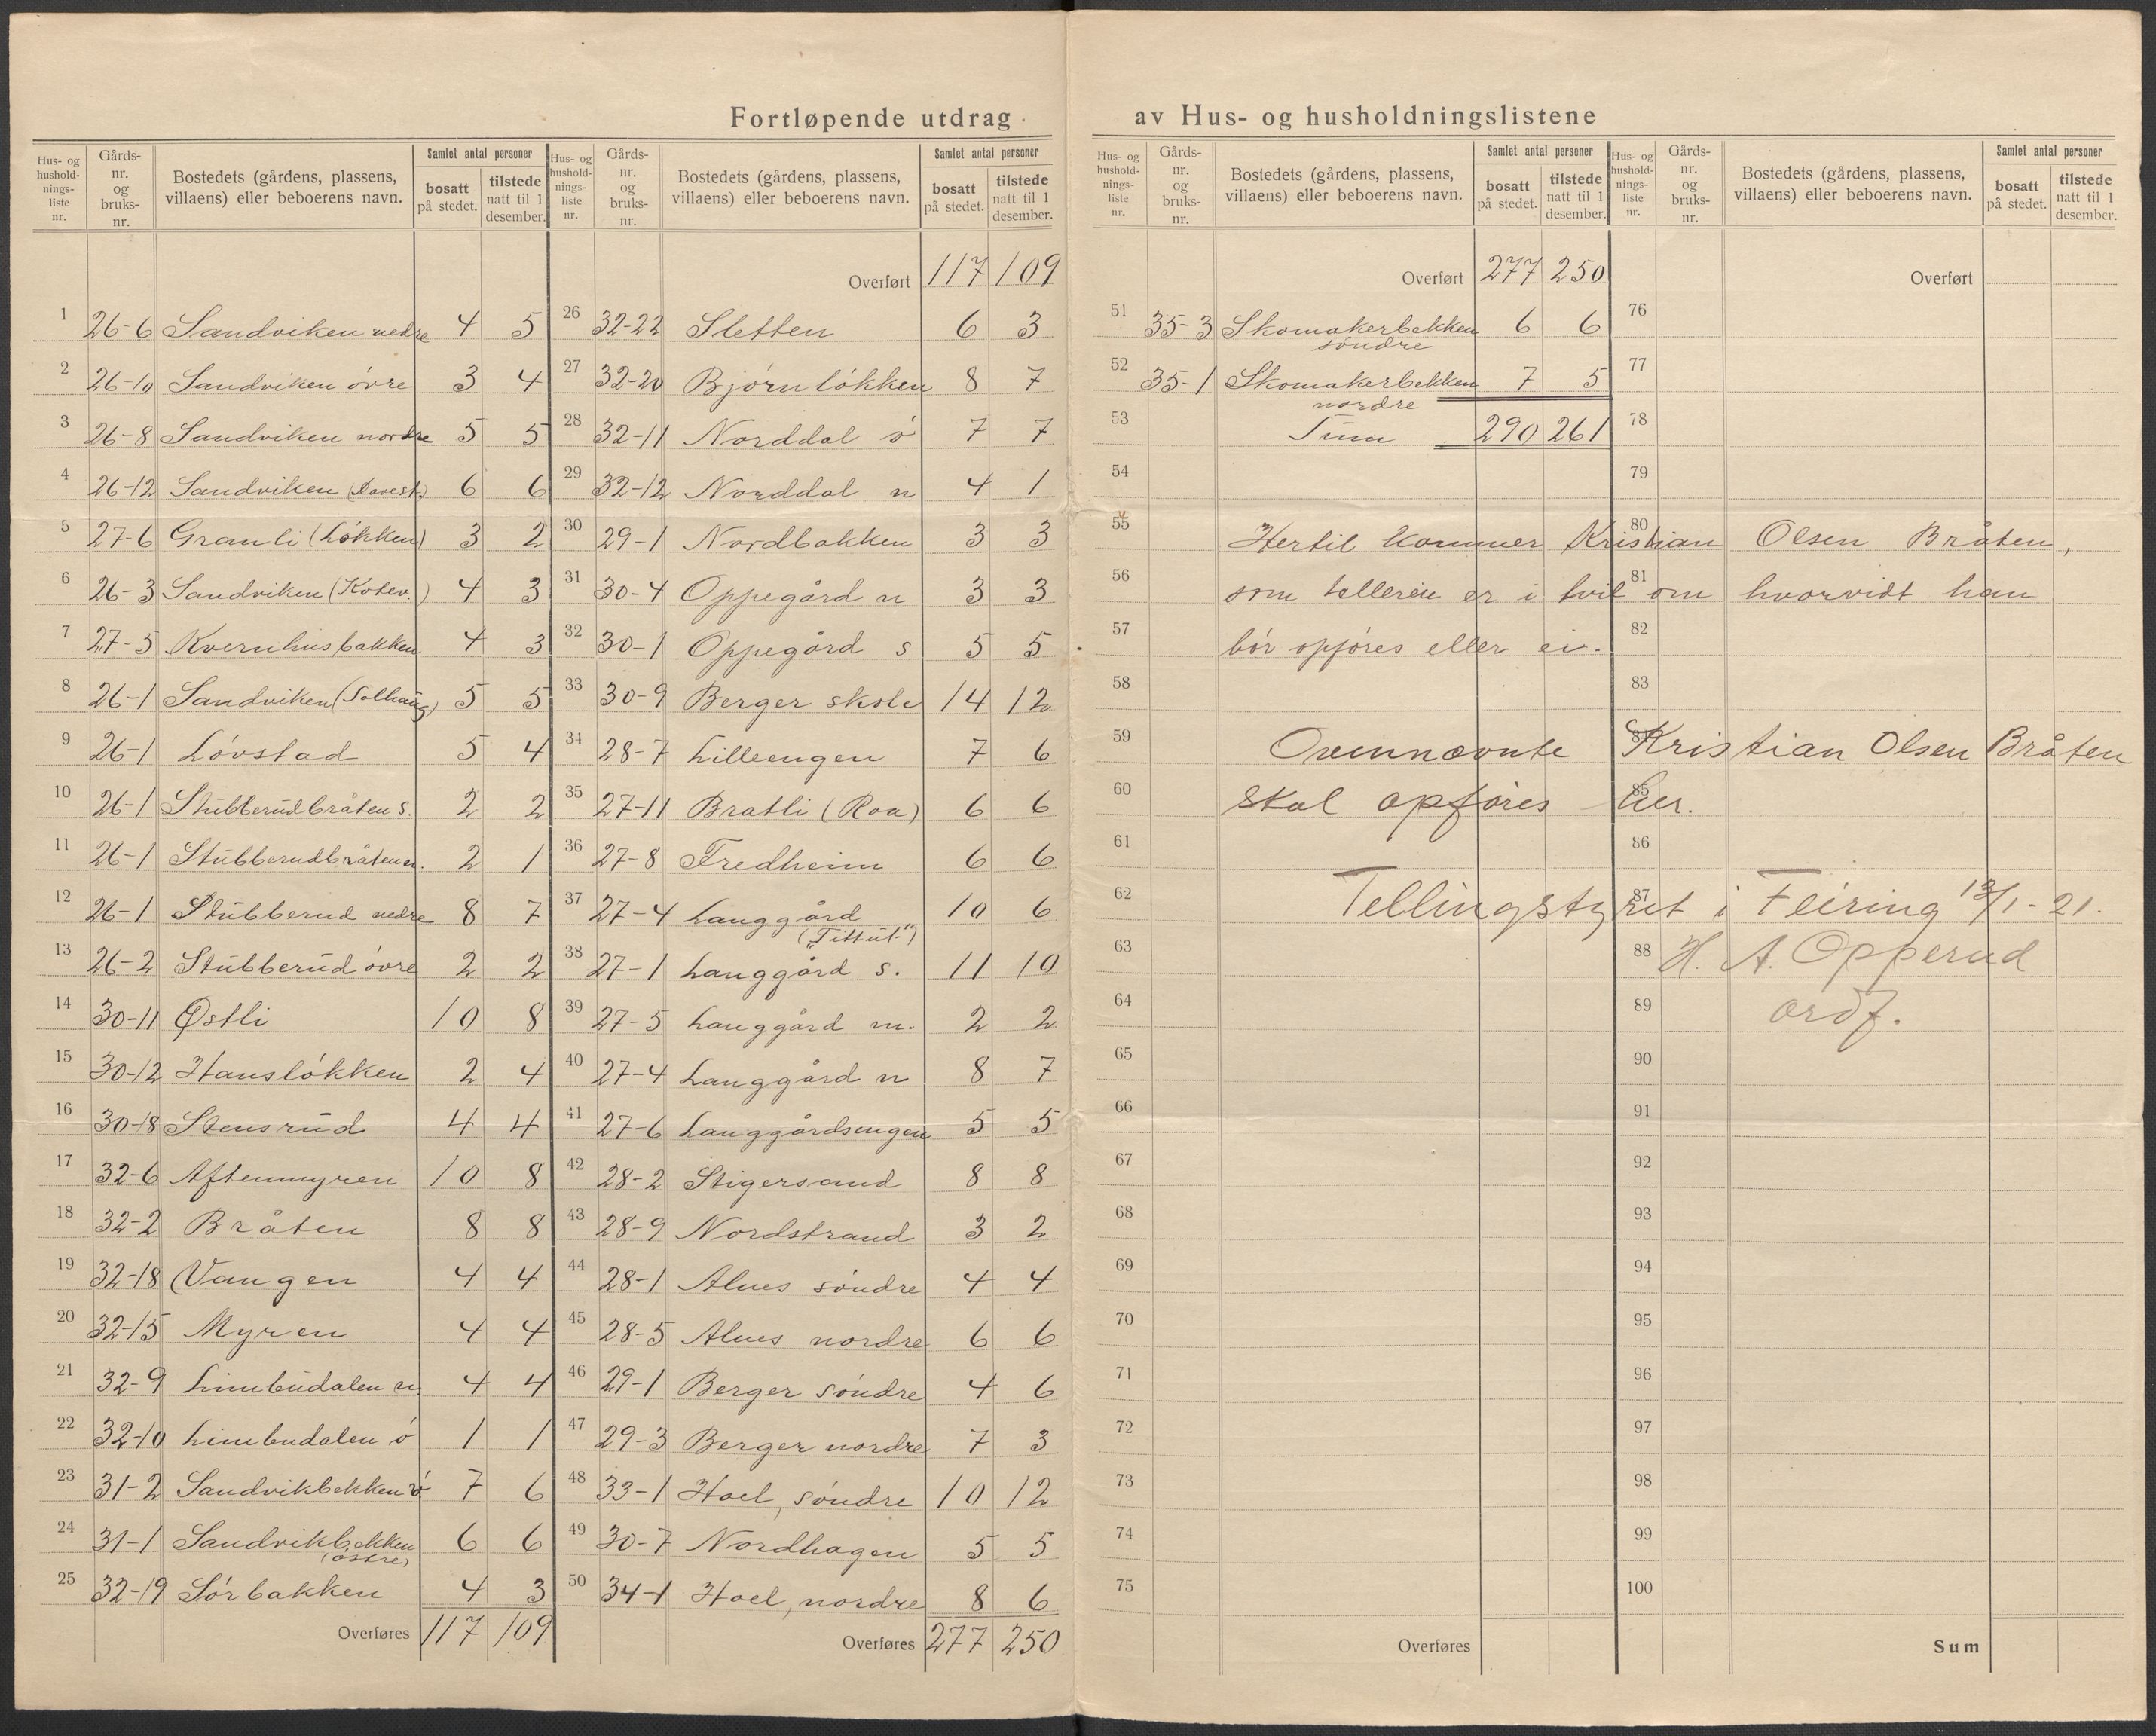 Fortløpende utdrag av Hus- og husholdningslistene
Hus- og husholdnings-liste nr. Gårds-nr. og bruks-nr. Bostedets (gårdens, plassens, villaens) eller beboerens navn. Samlet antal personer bosatt på stedet. tilstede natt til 1 desember.
1 26-6 Sandviken nedre 4 5
2 26-10 Sandviken övre 3 4
3 26-8 Sandviken nordre 5 5
4 26-12 Sandviken 6 6
5 27-6 Granli (Lökken) 3 2
6 26-3 Sandviken (Kotev.) 4 3
7 27-5 Kvernhusbakken 4 3
8 26-1 Sandviken (Solhaug) 5 5
9 26-1 Lövstad 5 4
10 26-1 Stubberudbråten s. 2 2
11 26-1 Stubberudbråten n. 2 1
12 26-1 Stubberud nedre 8 7
13 26-2 Stubberud övre 2 2
14 30-11 Østli 10 8
15 30-12 Hanslökken 2 4
16 30-18 Stensrud 4 4
17 32-6 Aftenmyren 10 8
18 32-2 Bråten 8 8
19 32-18 Vangen 4 4
20 32-15 Myren 4 4
21 32-9 Limbudalen n 4 4
22 32-10 Limbudalen ö 1 1
23 31-2 Sandvikbekken ö 7 6
24 31-1 Sandvikbekken 6 6
(östre)
25 32-19 Sörbakken 4 3
Overføres 117 109
Hus- og husholdnings-liste nr. Gårds-nr. og bruks-nr. Bostedets (gårdens, plassens, villaens) eller beboerens navn. Samlet antal personer bosatt på stedet. tilstede natt til 1 desember.
Overført 117 109
26 32-22 Sletten 6 3
27 32-20 Björnlökken 8 7
28 32-11 Norddal ö 7 7
29 32-12 Norddal n 4 1
30 29-1 Nordbakken 3 3
31 30-4 Oppegård n 3 3
32 30-1 Oppegård s 5 5
33 30-9 Berger skole 14 12
34 28-7 Lilleengen 7 6
35 27-11 Bratli (Roa) 6 6
36 27-8 Fredheim 6 6
37 27-4 Langgård 10 6
("Tittut")
38 27-1 Langgård s. 11 10
39 27-5 Langgård m. 2 2
40 27-4 Langgård n 8 7
41 27-6 Langgårdsengen 5 5
42 28-2 Stigersand 8 8
43 28-9 Nordstrand 3 2
44 28-1 Alnes söndre 4 4
45 28-5 Alnes nordre 6 6
46 29-1 Berger söndre 4 6
47 29-3 Berger nordre 7 3
48 33-1 Hoel, söndre 10 12
49 30-7 Nordhagen 5 5
50 34-1 Hoel, nordre 8 6
Overføres 277 250
Hus- og husholdnings-liste nr. Gårds-nr. og bruks-nr. Bostedets (gårdens, plassens, villaens) eller beboerens navn. Samlet antal personer bosatt på stedet. tilstede natt til 1 desember.
Overført 277 250
51 35-3 Skomakerbekken 6 6
söndre
52 35-1 Skomakerbekken 7 5
nordre
53 Sum 290 261
54
55 Hertil kommer Kristian Olsen Bråten,
56 som telleren er i tvil om hvorvidt han
57 bör opföres eller ei.
58
59 Ovennævnte Kristian Olsen Bråten
60 skal opföres her.
61
62 Tellingstyret i Feiring 13/1-21.
63 H. A. Opperud
64 ordf.
65
66
67
68
69
70
71
72
73
74
75
Overføres
Hus- og husholdnings-liste nr. Gårds-nr. og bruks-nr. Bostedets (gårdens, plassens, villaens) eller beboerens navn. Samlet antal personer bosatt på stedet. tilstede natt til 1 desember.
Overført
76
77
78
79
80
81
82
83
85
86
87
88
89
90
91
92
93
94
95
96
97
98
99
100
Sum